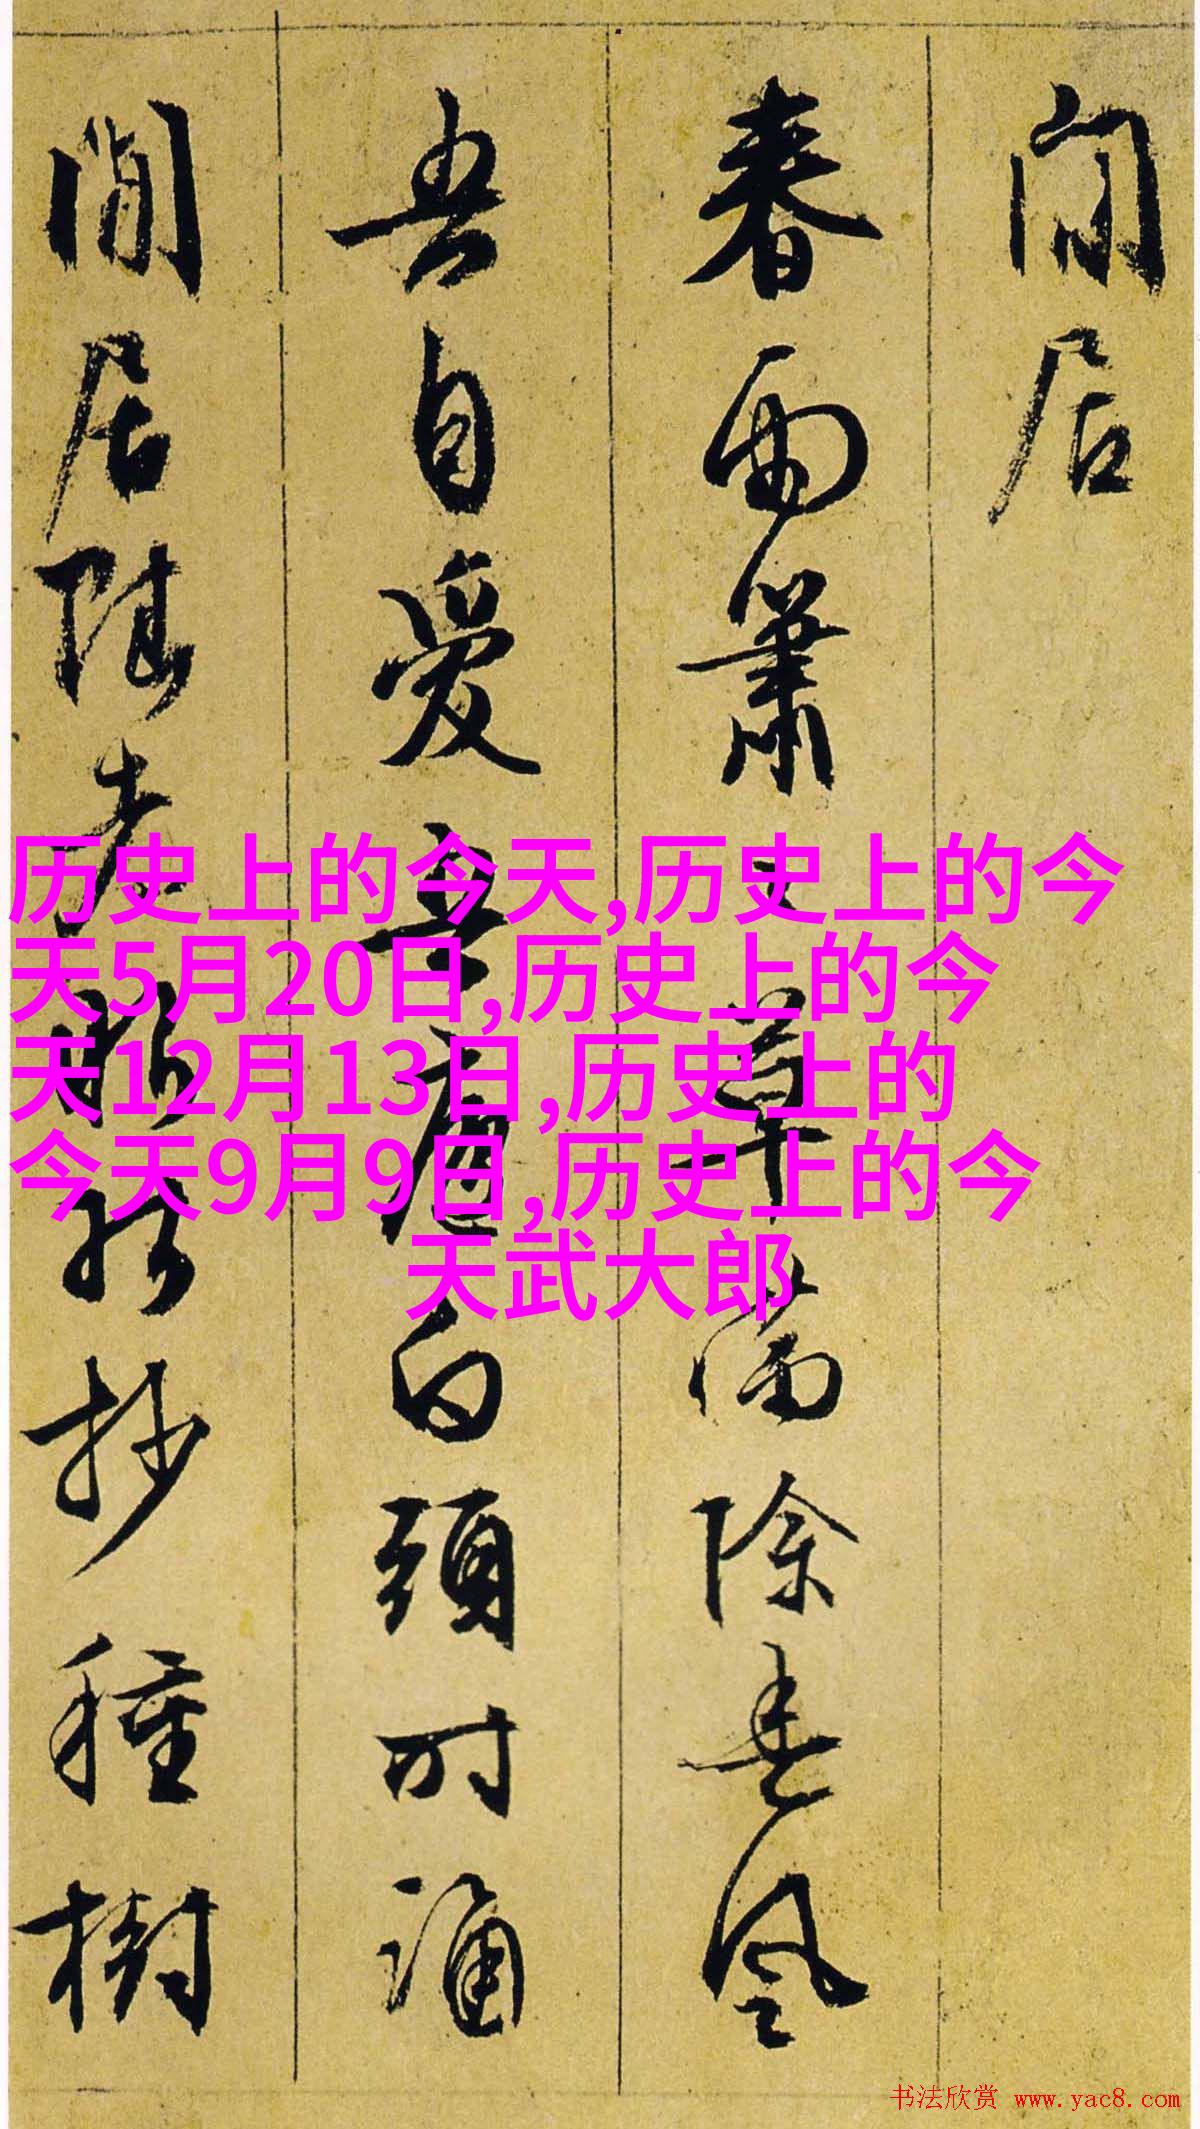 閒居
春雨蕭〻草滿除春風
吾自愛吾廬白頭時誦
閒居賦老眼能抄種樹
历史上的今天,历史上的今
天5月20日,历史上的今
天12月13日,历史上的
今天9月9日,历史上的今
天武大郎
书法欣赏 www.yac8.com